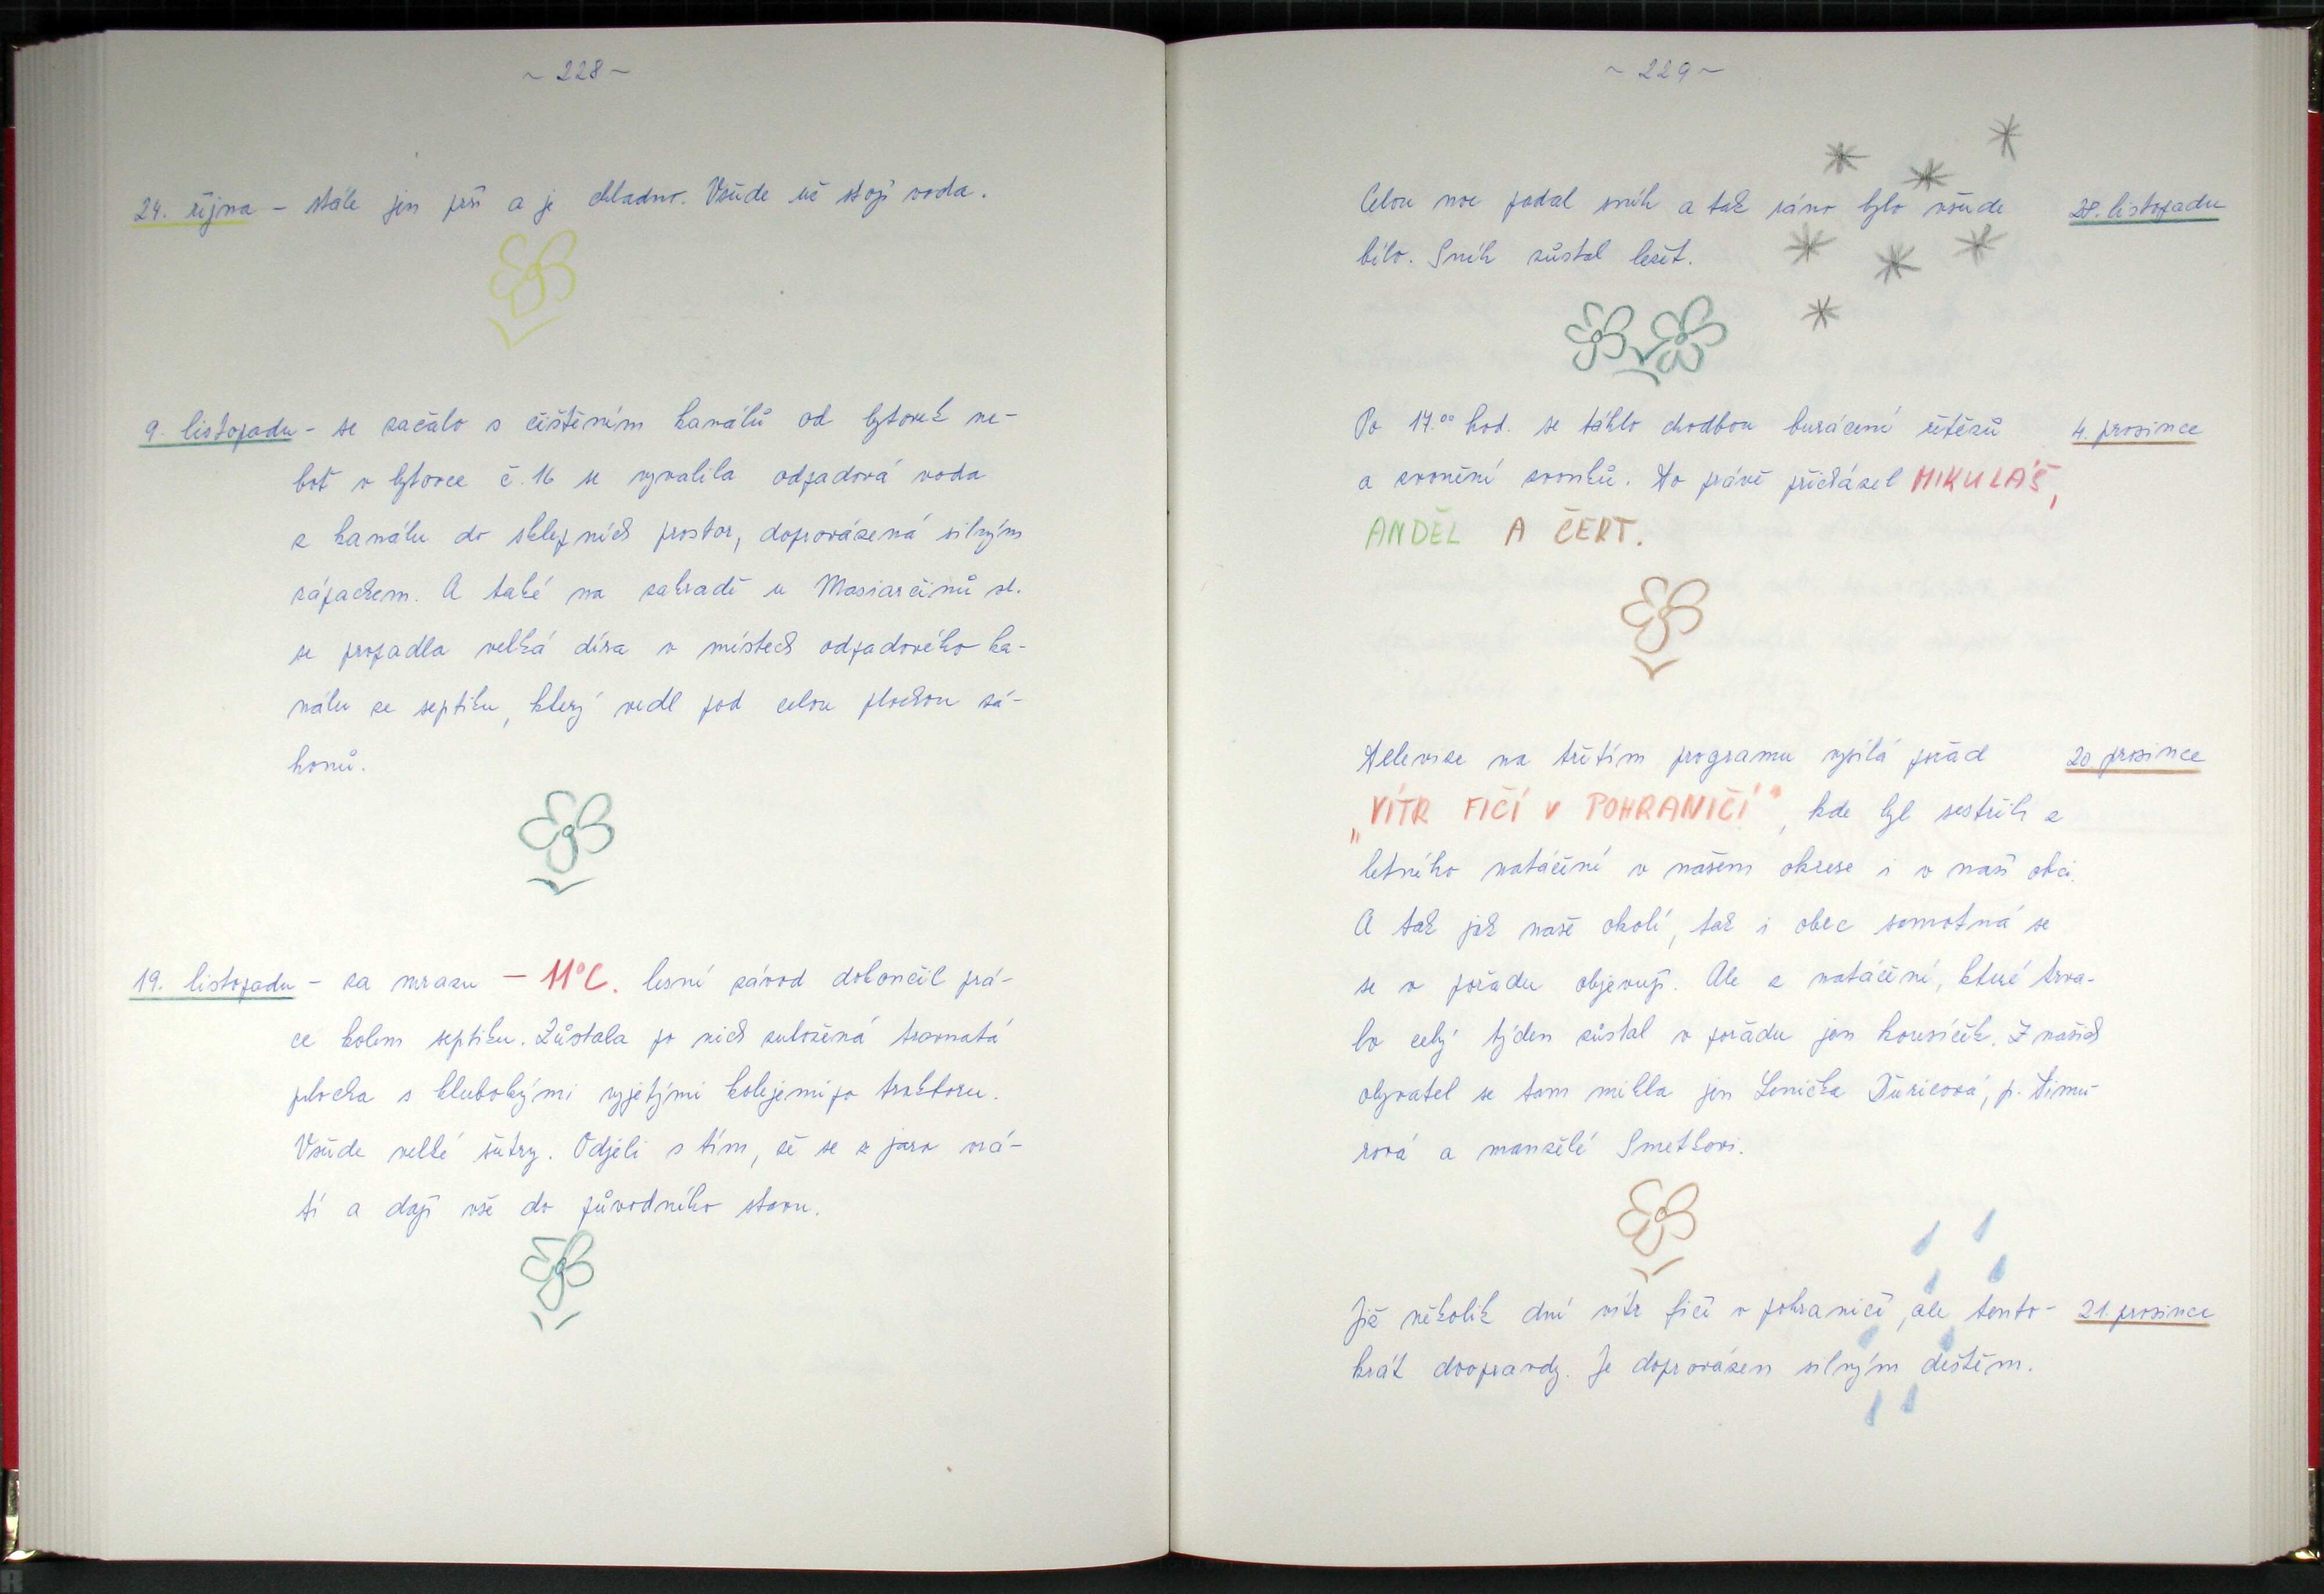 ~ 228 ~
24. října - stále jen prší a je chladno. Všude už stojí voda.
9. listopadu - se začalo s čištěním kanálů od bytovek ne-
boť v bytovce č. 16 se vyvalila odpadová voda
z kanálu do sklepních prostor, doprovázená silným
zápachem. A také na zahradě u Masiarčinů st.
se propadla velká díra v místech odpadového ka-
nálu ze septiku, který vedl pod celou plochou zá-
honů.
19. listopadu - za mrazu - 11°C. lesní závod dokončil prá-
ce kolem septiku. Zůstala po nich zuložená travnatá
plocha s hlubokými vyjetými kolejemi po traktoru.
Všude velké šutry. Odjeli s tím, že se z jara vrá-
tí a dají vše do původního stavu.
~ 229 ~
Celou noc padal sníh a tak ráno bylo všude 28. listopadu
bílo. Sníh zůstal ležet.
Po 17.00 hod. se táhlo chodbou burácení řetězů 4. prosince
a zvonění zvonků. To právě přicházel MIKULÁŠ,
ANDĚL A ČERT.
Televize na třetím programu vysílá pořad 20. prosince
„VÍTR FIČÍ V POHRANIČÍ", kde byl sestřih z
letního natáčení v našem okrese i v naší obci.
A tak jak naše okolí, tak i obec samotná se
se v pořadu objevují. Ale z natáčení, které trva-
lo celý týden zůstal v pořadu jen kousíček. Z našich
obyvatel se tam mihla jen Lenička Ďuricová, p. Timu-
rová a manželé Smetkovi.
Již několik dní vítr fičí v pohraničí, ale tento- 21. prosince
krát doopravdy. Je doprovázen silným deštěm.